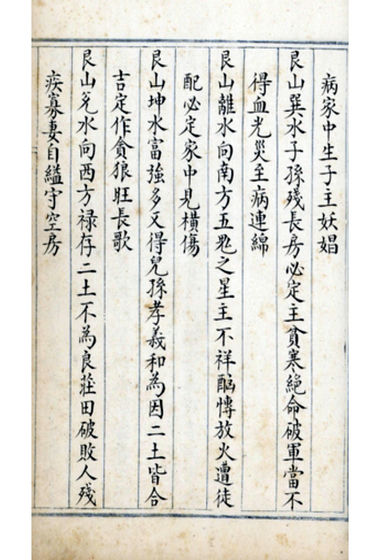 病家中生子主妖娼
艮山巽水子孫殘長房必定主貧寒絕命破軍當不
得血光災主病連綿
艮山離水向南方五鬼之星主不祥酗愽放火遭徒
配必定家中見橫傷
艮山坤水富強多又得兒孫孝義和為因二土皆合
吉定作貪狼旺長歌
艮山兌水向西方禄存二土不為良莊田破敗人殘
疾寡妻自縊守空房